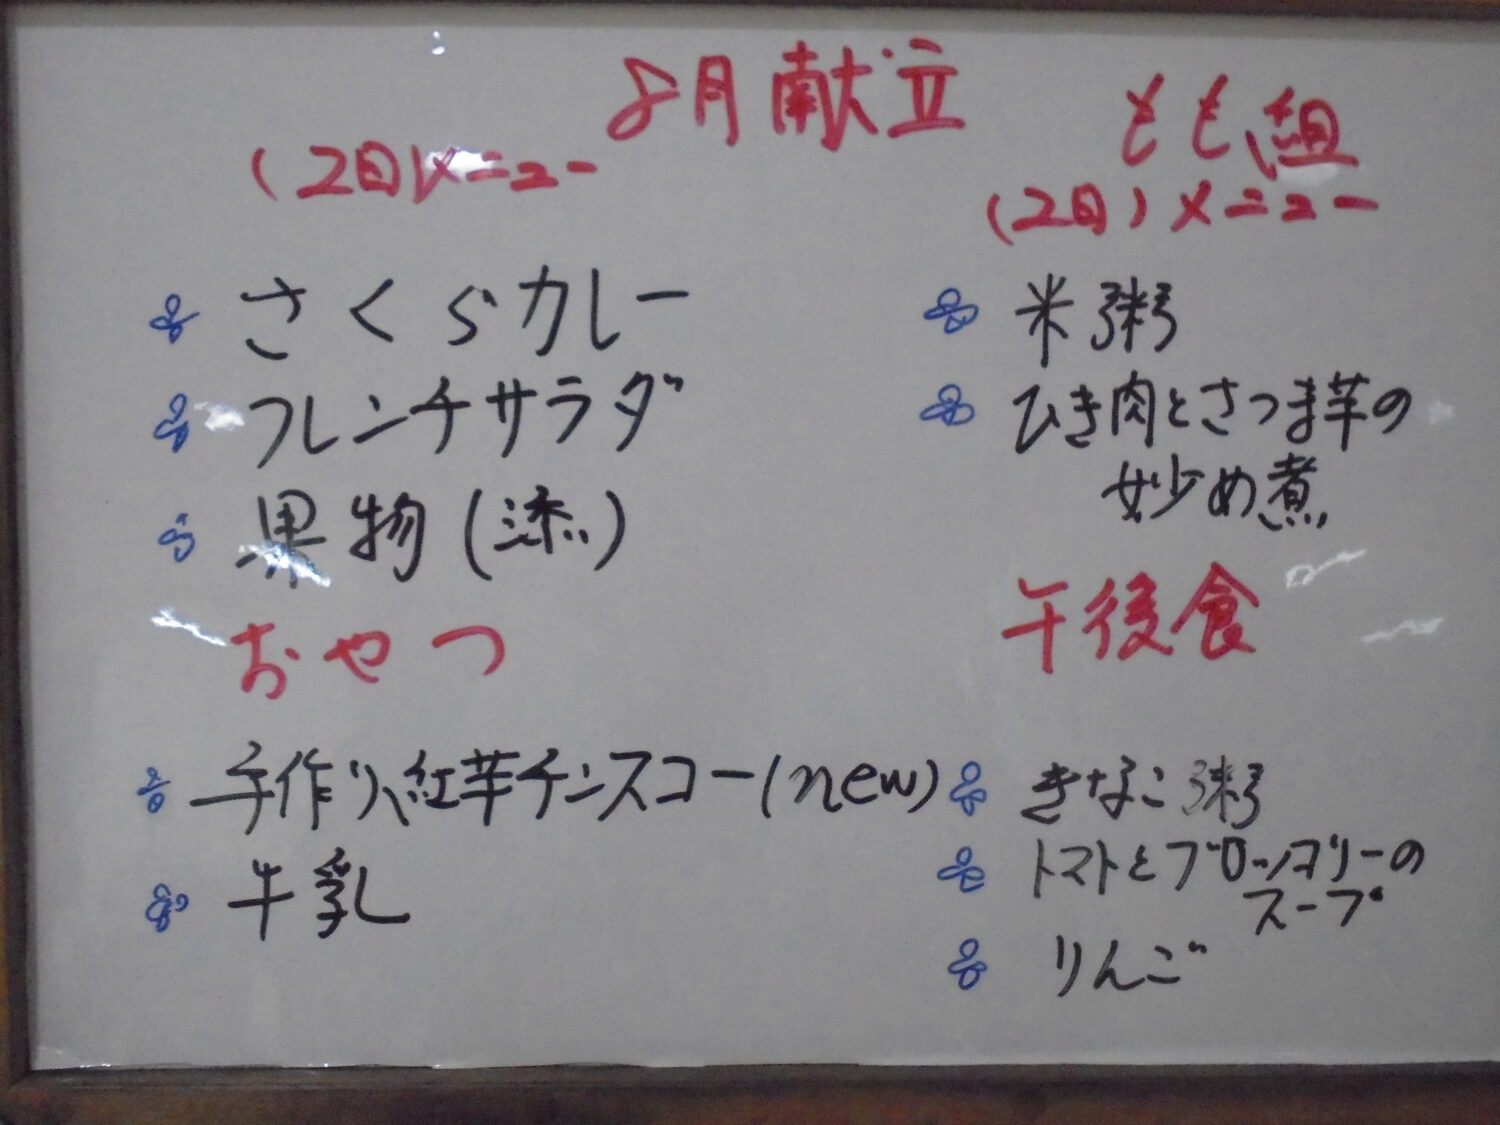 8月献立
(2日)メニュー
さくらカレー
フレンチサラダ
果物(添)
おやつ
手作り紅芋チンスコー(new)
牛乳
もも組
(2日)メニュー
米粥
ひき肉とさつま芋の
炒め煮
午後食
きなこ粥
トマトとブロッコリーの
スープ
りんご